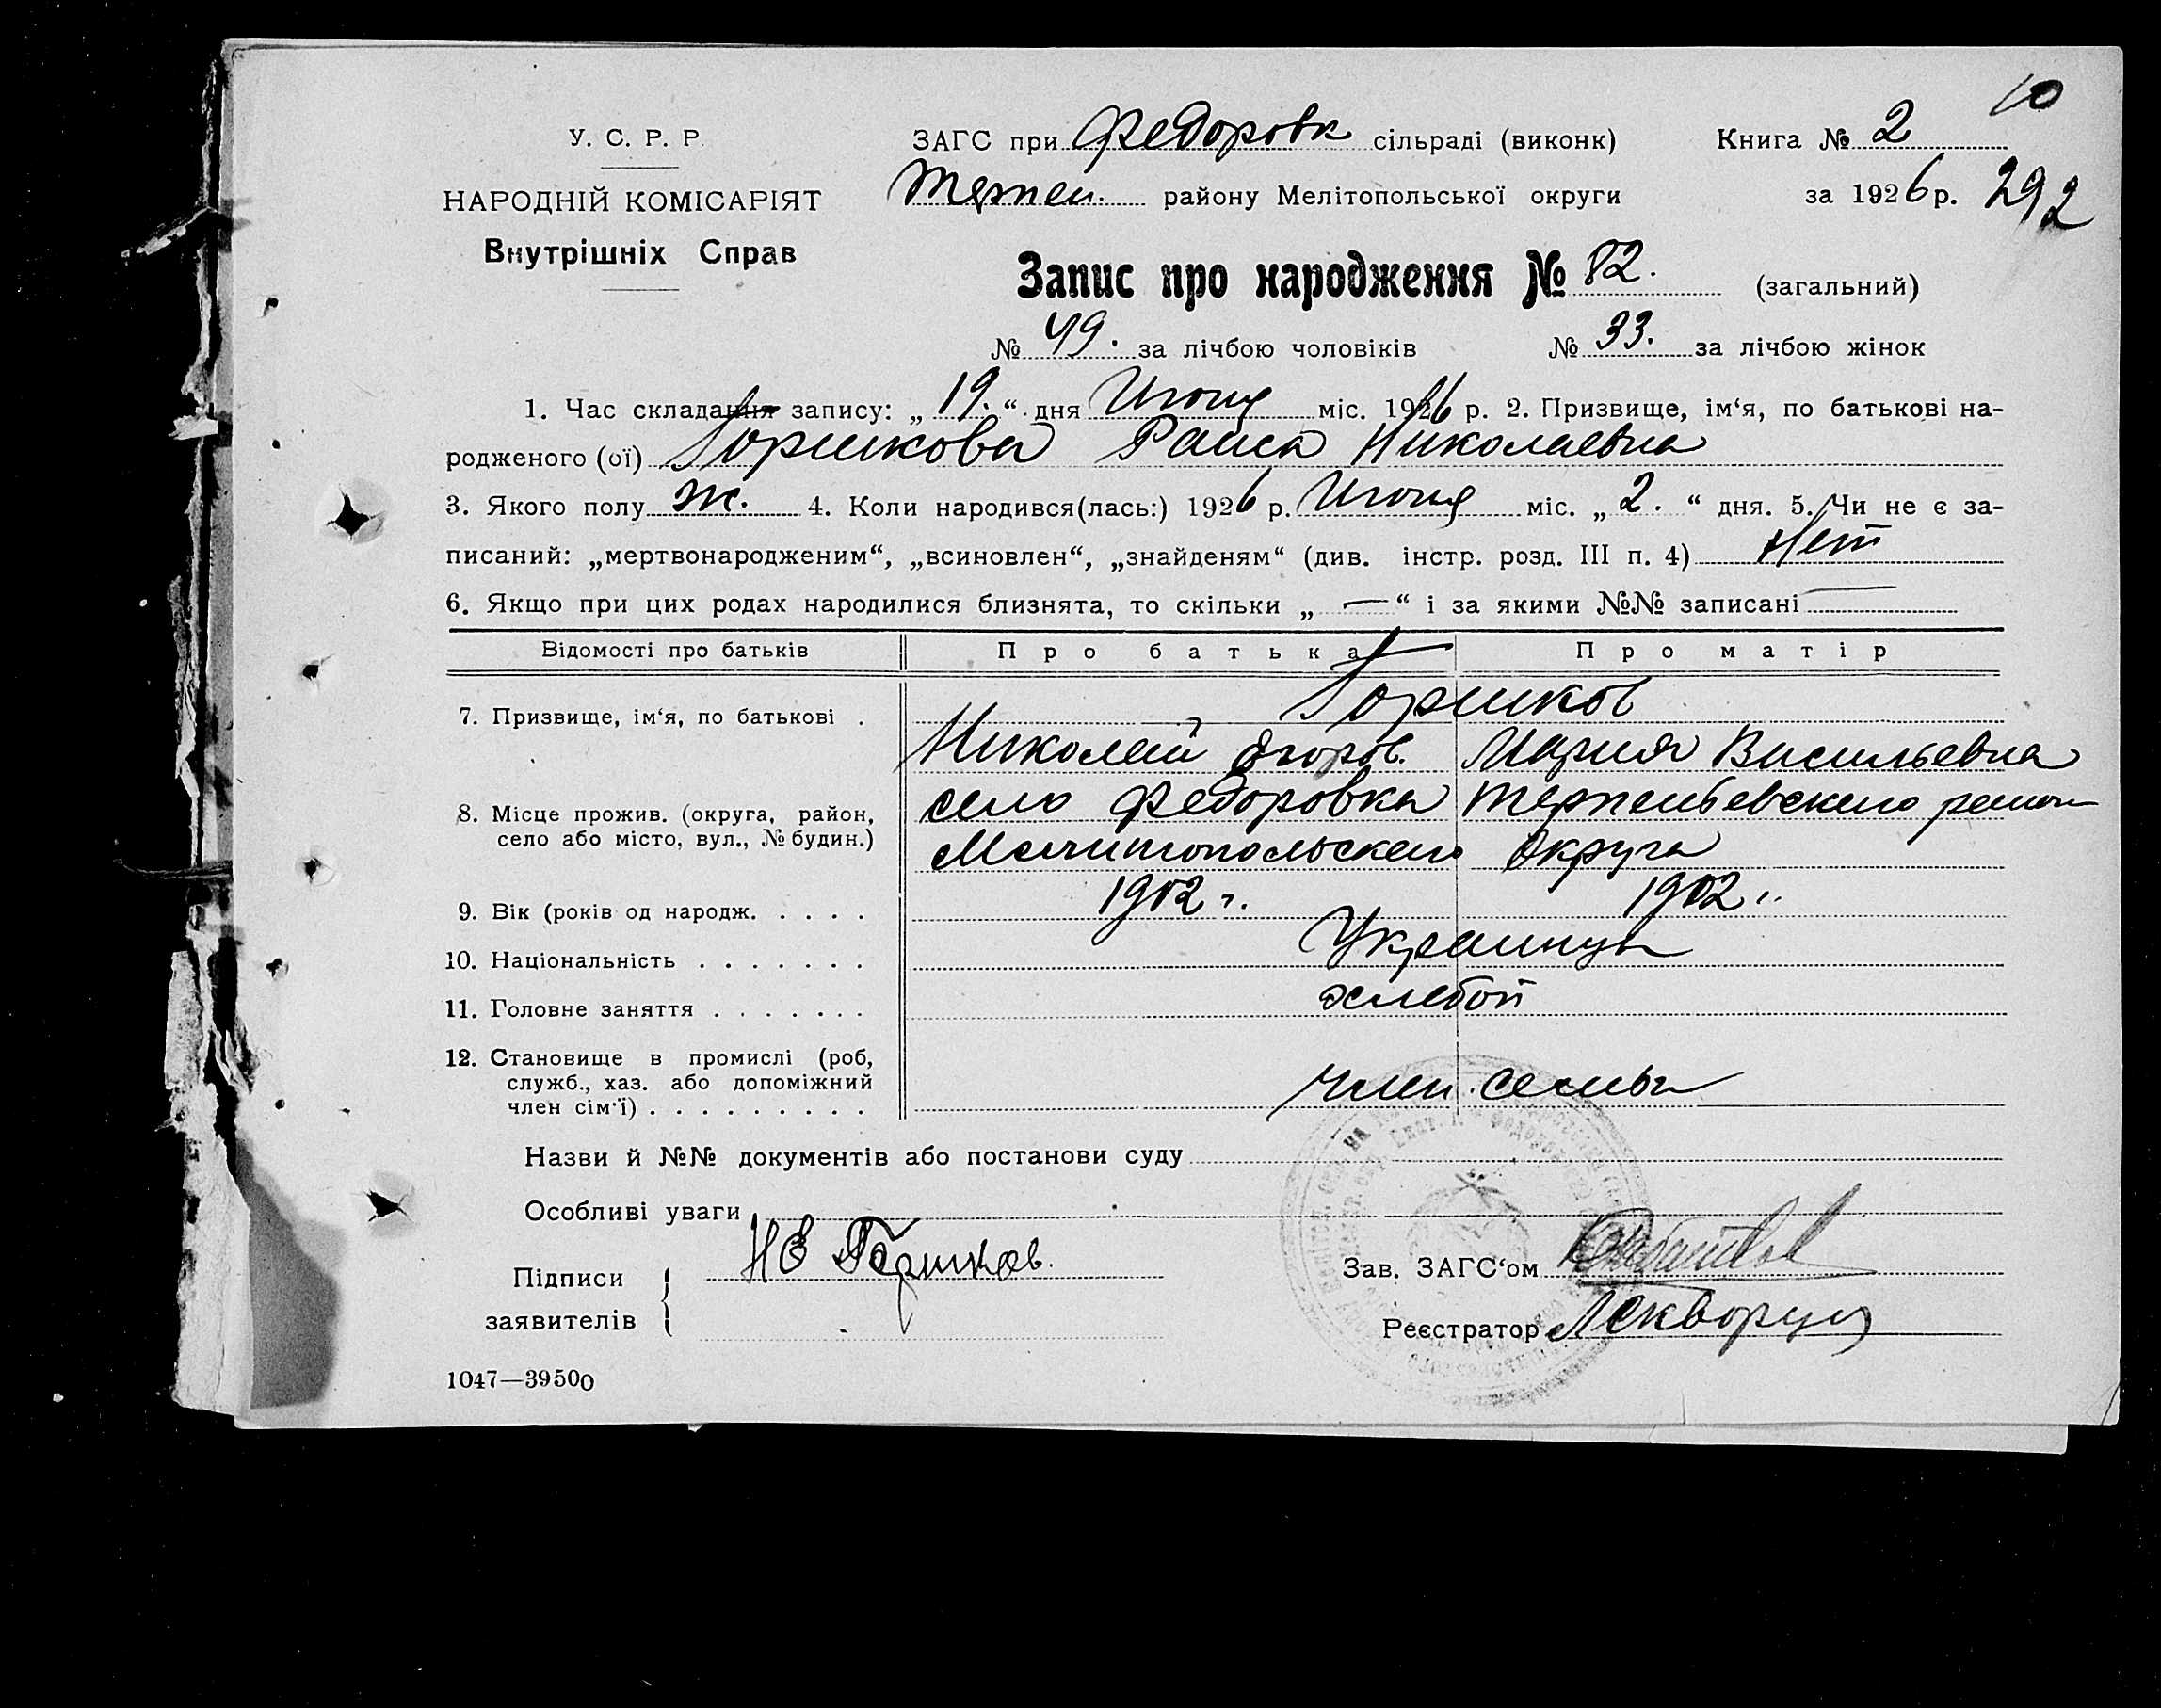 10
У. С. Р. Р.
ЗАГС при Федоровк сільраді (виконк) Книга № 2
НАРОДНІЙ КОМІСАРІЯТ
Терпен. району Мелітопольської округи за 1926 р. 292
Внутрішніх Справ
Запис про народження № 82. (загальний)
№ 49. за лічбою чоловіків № 33. за лічбою жінок
1. Час складання запису: „19.“ дня Июня міс. 1926 р. 2. Призвище, ім‘я, по батькові на-
родженого (ої) Горшкова Раиса Николаевна
3. Якого полу ж. 4. Коли народився(лась:) 1926 р. Июня міс. „2.“ дня. 5. Чи не є за-
писаний: „мертвонародженим“, „всиновлен“, „знайденям“ (див. інстр. розд. III п. 4) Нет
6. Якщо при цих родах народилися близнята, то скільки „—“ і за якими №№ записані —
Відомості про батьків Про батька Про матір
Горшков
7. Призвище, ім‘я, по батькові .
Николай Егоров. Мария Васильевна
8. Місце прожив. (округа, район, село Федоровка Терпеньевского район
село або місто, вул., № будин.) Мелитопольского Округа
9. Вік (років од народж. . . . . 1902 г. 1902 г.
10. Національність . . . . . . . Украинцы
11. Головне заняття . . . . . . . хлебоп
12. Становище в промислі (роб,
служб., хаз. або допоміжний член. семьи
член сім‘ї) . . . . . . . . .
Назви й №№ документів або постанови суду
Особливі уваги
Підписи Н Е Горшков. Зав. ЗАГС‘ом
заявителів Реєстратор
1047—39500